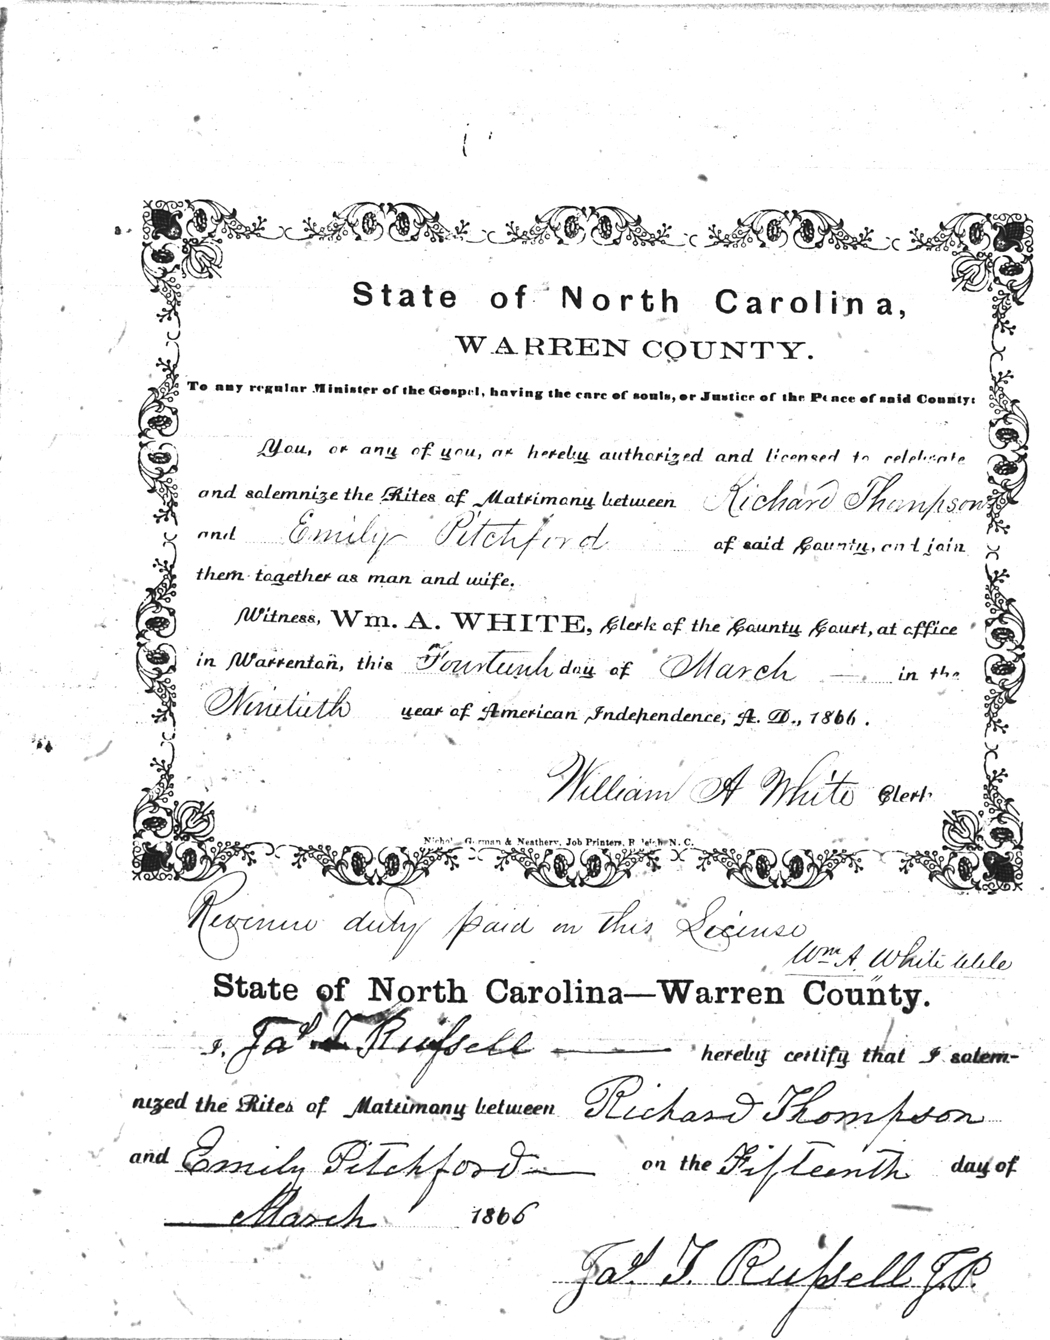 State of North Carolina,
WARREN COUNTY.
To any regular Minister of the Gospel, having the care of souls, or Justice of the Peace of said County:
You, or any of you, are hereby authorized and licensed to celebrate
and solemnize the Rites of Matrimony between Richard Thompson
and Emily Pitchford of said County, and join
them together as man and wife.
Witness, Wm. A. WHITE, Clerk of the County Court, at office
in Warrenton, this Fourteenth day of March — in the
Ninetieth year of American Independence, A. D., 1866.
William A White Clerk
& Neathery, Job Printers, Raleigh, N. C.
Revenue duty paid on this License
Wm A. White
State of North Carolina—Warren County.
I, Jas. T. Russell — hereby certify that I solem-
nized the Rites of Matrimony between Richard Thompson
and Emily Pitchford — on the Fifteenth day of
March 1866
Jas. T. Russell J.P.